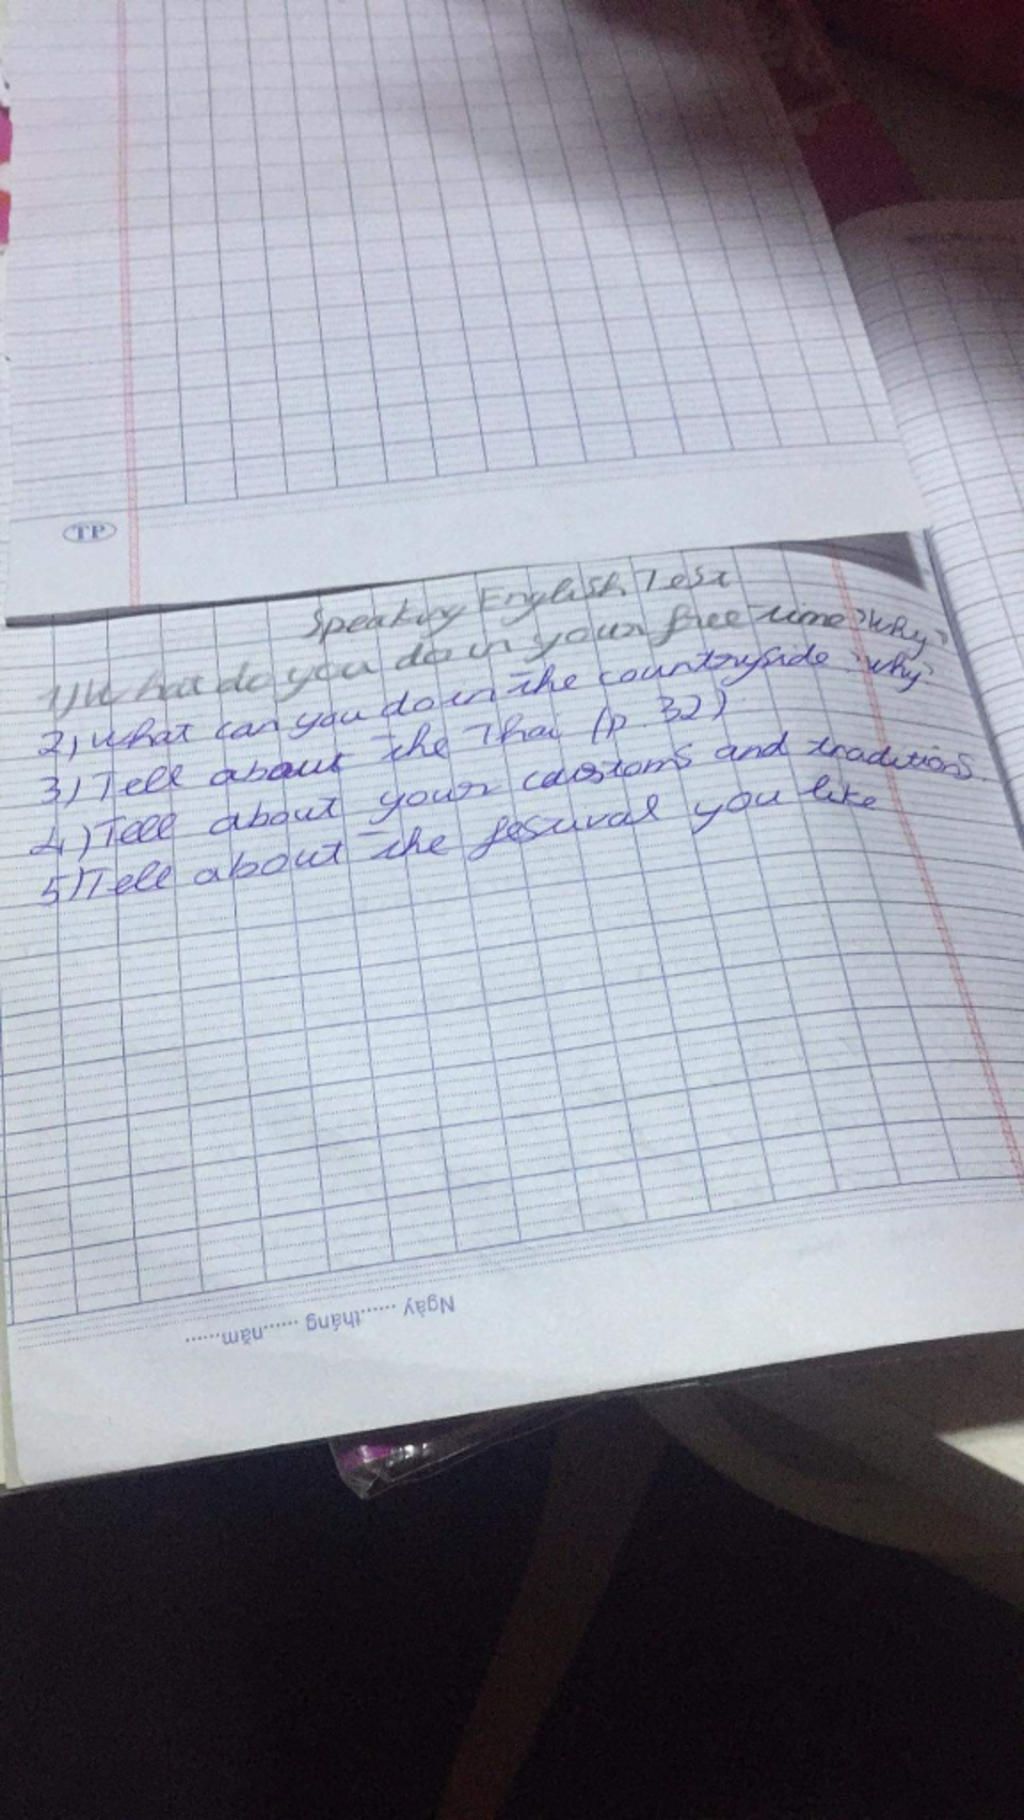 TP
Speaking English Test
1) What do you do in your free time? Why?
2) What can you do in the countryside? why?
3) Tell about the Thai (p. 32)
4) Tell about your customs and traditions.
5) Tell about the festival you like
Ngày ......tháng ......năm......